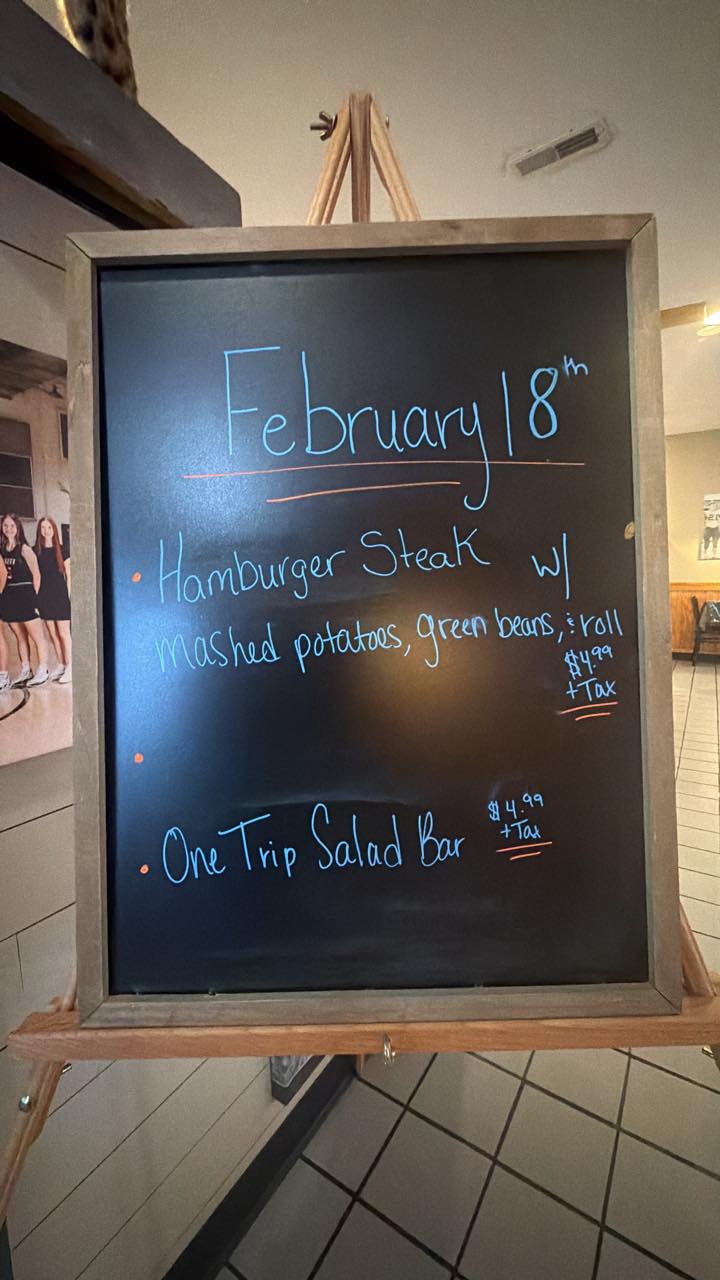 February 18th
• Hamburger Steak w/
mashed potatoes, green beans, & roll
$4.99
+Tax
•
• One Trip Salad Bar
$4.99
+Tax